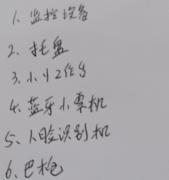 1. 监控设备
2. 托盘
3. 小工作台
4. 蓝牙小票机
5. 人脸识别机
6. 巴枪